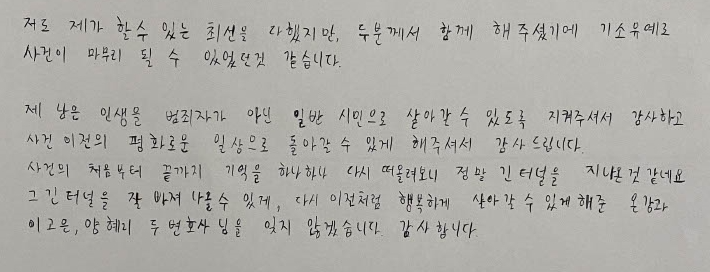 저도 제가 할 수 있는 최선을 다 했지만, 두분께서 함께 해 주셨기에 기소유예로
사건이 마무리 될 수 있었던것 같습니다.
제 남은 인생을 범죄자가 아닌 일반 시민으로 살아갈 수 있도록 지켜주셔서 감사하고
사건 이전의 평화로운 일상으로 돌아갈 수 있게 해주셔서 감사드립니다.
사건의 처음부터 끝까지 기억을 하나하나 다시 떠올려보니 정말 긴 터널을 지나온것 같네요
그 긴 터널을 잘 빠져 나올 수 있게, 다시 이전처럼 행복하게 살아갈 수 있게 해준 온강과
이고은, 양혜리 두 변호사님을 잊지 않겠습니다. 감사합니다.